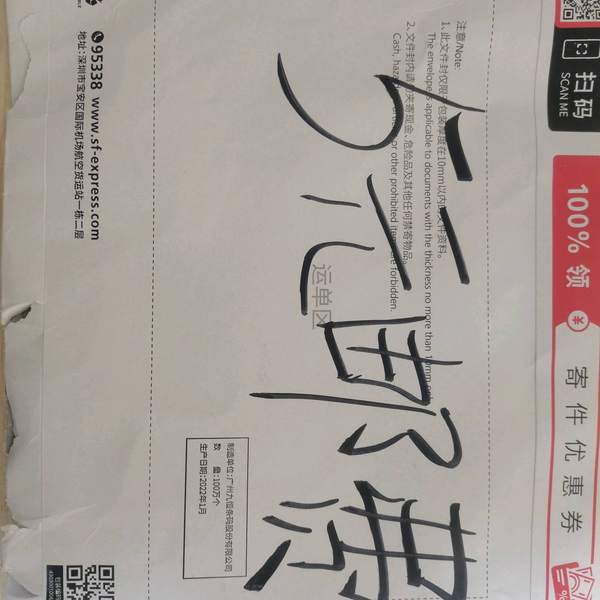 扫码
SCAN ME
100% 领 ¥ 寄件优惠券
注意/Note:
1、此文件封仅限 包装厚度在10mm以内的文件资料。
The envelope applicable to documents with the thickness no more than
2、文件封内请勿夹寄现金、危险品及其他任何禁寄物品。
Cash, or other prohibited items are forbidden.
5元邮费
运单区
制造单位:广州九恒条码股份有限公司
数 量:100万个
生产日期:2022年1月
95338 www.sf-express.com
地址:深圳市宝安区国际机场航空货运站一栋二层